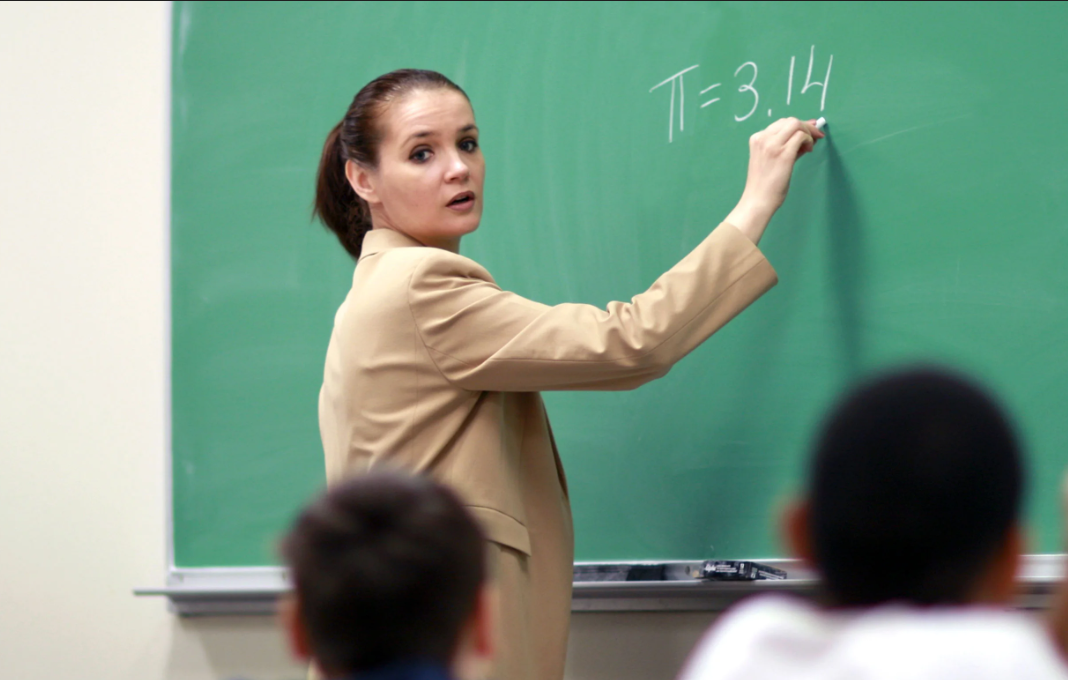 π = 3.14